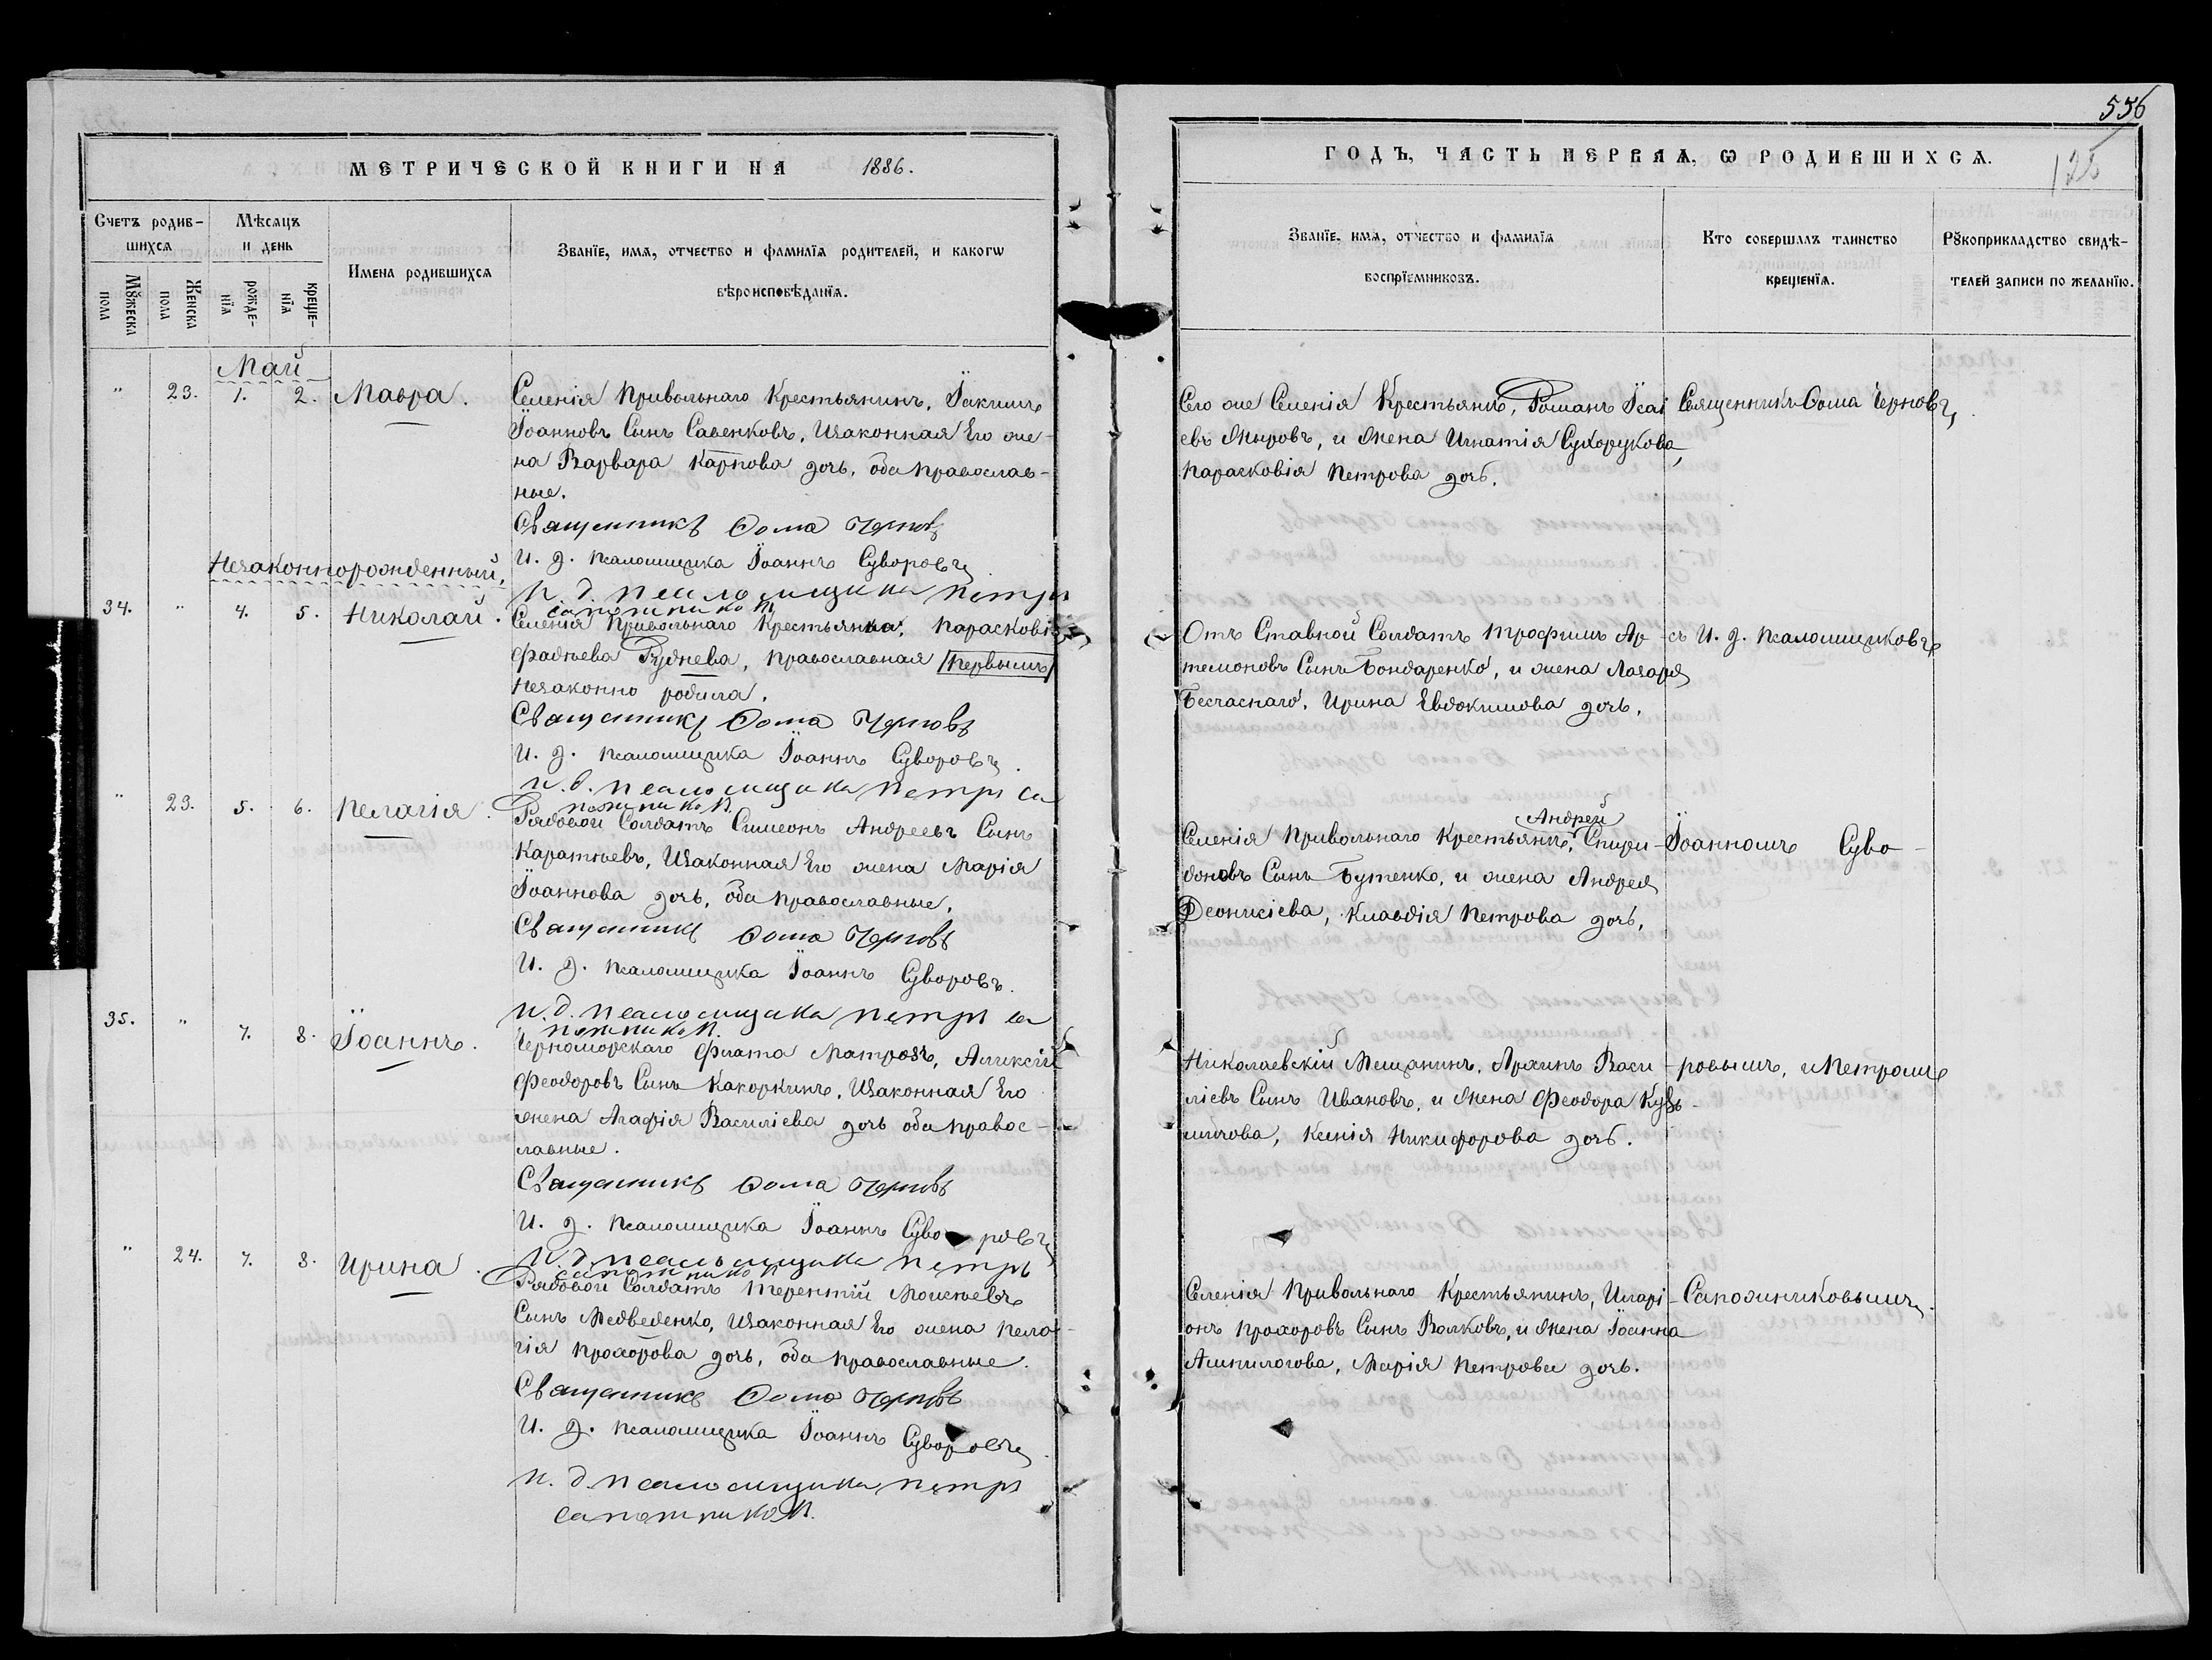 556
122
МЕТРИЧЕСКОЙ КНИГИ НА 1886.
ГОДЪ, ЧАСТЬ ПЕРВАЯ, Ѡ РОДИВШИХСѦ.
Счетъ родив-
шихсѧ
Мѣсѧцъ
и день
Имена родившихсѧ
Званїе, имѧ, отчество и фамилїѧ родителей, и какогѡ
вѣроисповѣданїѧ.
Мꙋжеска
пола
Женска
пола
рожде-
нїѧ
креще-
нїѧ
Званїе, имѧ, отчество и фамилїѧ
воспрїемниковъ.
Кто совершалъ таинство
крещенїѧ.
Рꙋкоприкладство свидѣ-
телей записи по желанїю.
Май
" 23. 1. 2. Мавра.
Селенія Привольнаго Крестьянинъ, Іакимъ
Іоанновъ Сынъ Савенковъ, Изаконная Его же-
на Варвара Карпова дочь, оба православ-
ные.
Священникъ Ѳома Черновъ
И. д. псаломщика Іоаннъ Суворовъ
и. д. псаломщика Петръ
сапожниковъ
Его же Селенія Крестьянъ, Романъ Исаі
евъ Жыровъ, и Жена Игнатія Сухорукова,
Парасковія Петрова дочь.
Священникъ Ѳома Черновъ,
Незаконнорожденный,
34. " 4. 5. Николай.
Селенія Привольнаго Крестьянка, Парасковія
Фадѣева Руднева, православная /Первымъ/
незаконно родила.
Священникъ Ѳома Черновъ
И. д. псаломщика Іоаннъ Суворовъ.
и. д. псаломщика Петръ са
пожниковъ.
Отъ Ставной Солдатъ Трофимъ Ар-
темоновъ Сынъ Бондаренко, и жена Лазаря
Бесчаснаго, Ирина Евдокимова дочь.
съ И. д. псаломщиковъ
" 23. 5. 6. Пелагія.
Рядовой Солдатъ Симеонъ Андреевъ Сынъ
Каратѣевъ, Изаконная Его жена Марія
Іоаннова дочь, оба православные,
Священникъ Ѳома Черновъ
И. д. псаломщика Іоаннъ Суворовъ.
и. д. псаломщика Петръ са
пожниковъ.
Андрей
Селенія Привольнаго Крестьянъ, Спири-
доновъ Сынъ Бутенко, и жена Андрея
Деонисіева, Клавдія Петрова дочь,
Іоанномъ Суво-
35. " 7. 8. Іоаннъ.
Черноморскаго Флота Матрозъ, Алексій
Феодоровъ Сынъ Какоркинъ, Изаконная Его
жена Агафія Василіева дочь оба правос-
лавные.
Священникъ Ѳома Черновъ
И. д. псаломщика Іоаннъ Суворовъ
и. д. псаломщика Петръ
сапожниковъ
Николаевскій Мещанинъ, Архипъ Васи-
ліевъ Сынъ Ивановъ, и Жена Феодора Кузь-
мичова, Ксенія Никифорова дочь.
ровымъ, и Петромъ
" 24. 7. 8. Ирина.
Рядовой Солдатъ Терентій Моисѣевъ
Сынъ Медведенко, Изаконная Его жена Пела-
гія Прохорова дочь, оба православные.
Священникъ Ѳома Черновъ
И. д. псаломщика Іоаннъ Суворовъ.
и. д. псаломщика Петръ
сапожниковъ.
Селенія Привольнаго Крестьянинъ, Иларі-
онъ Прохоровъ Сынъ Волковъ, и Жена Іоанна
Ампилогова, Марія Петрова дочь.
Сапожниковымъ.